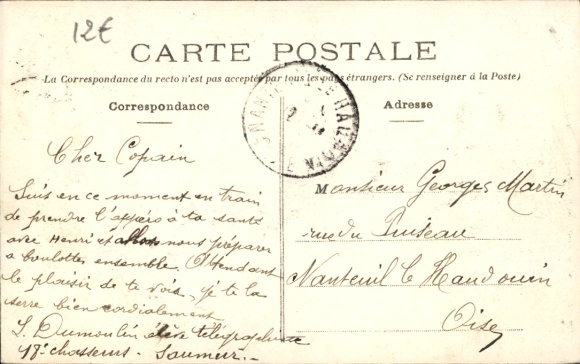 12€
CARTE POSTALE
La Correspondance du recto n'est pas acceptée par tous les pays étrangers. (Se renseigner à la Poste)
Correspondance
Adresse
NANTEUIL-LE-HAUDOUIN
Cher Copain
Suis en ce moment en train
de prendre l'appéro à ta santé
avec Henri et allons nous préparer
à boulotter ensemble. Attendant
le plaisir de te voir, je te la
serre bien cordialement
L. Dumoulin élève télégraphiste
18e chasseurs - Saumur. -
Monsieur Georges Martin
rue du Puiseau
Nanteuil le Haudouin
Oise